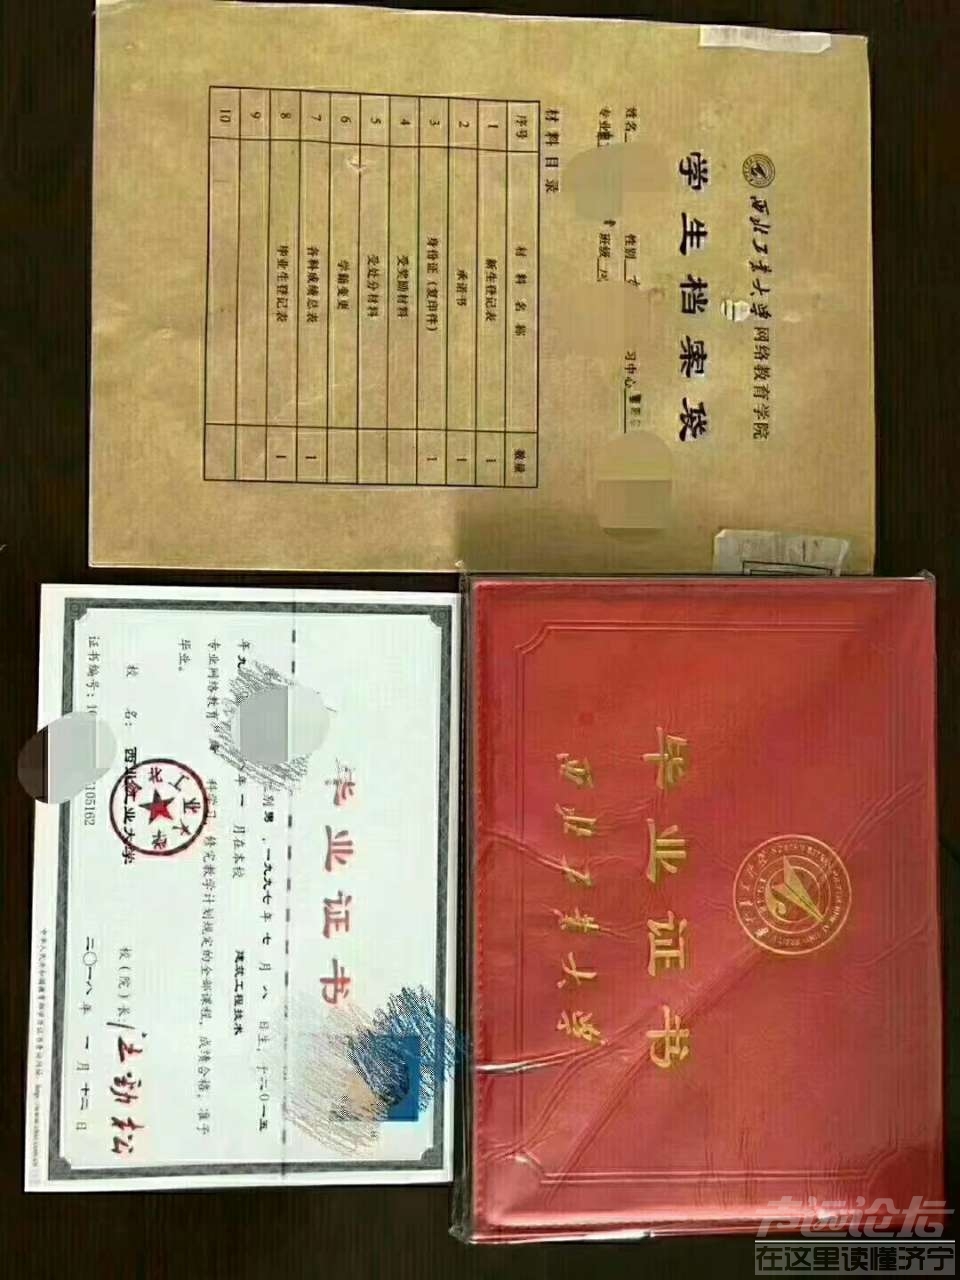 西北工业大学网络教育学院
学生档案袋
姓名
性别 女
习中心
专业
班级
材料目录
序号 材料名称 数量
1 新生登记表 1
2 承诺书 1
3 身份证(复印件) 1
4 受奖励材料
5 受处分材料
6 学籍变更
7 各科成绩总表 1
8 毕业生登记表 1
9
10
毕业证书
西北工业大学
毕业证书
性别 男,一九九七年七月八日生,于二〇一五
年九
年一月在本校 建筑工程技术
专业网络教育
科学习,修完教学计划规定的全部课程,成绩合格,准予
毕业。
校 名:西北工业大学
校(院)长:汪劲松
证书编号:10
105162
二〇一八年 一 月 十二 日
声远论坛
在这里读懂济宁